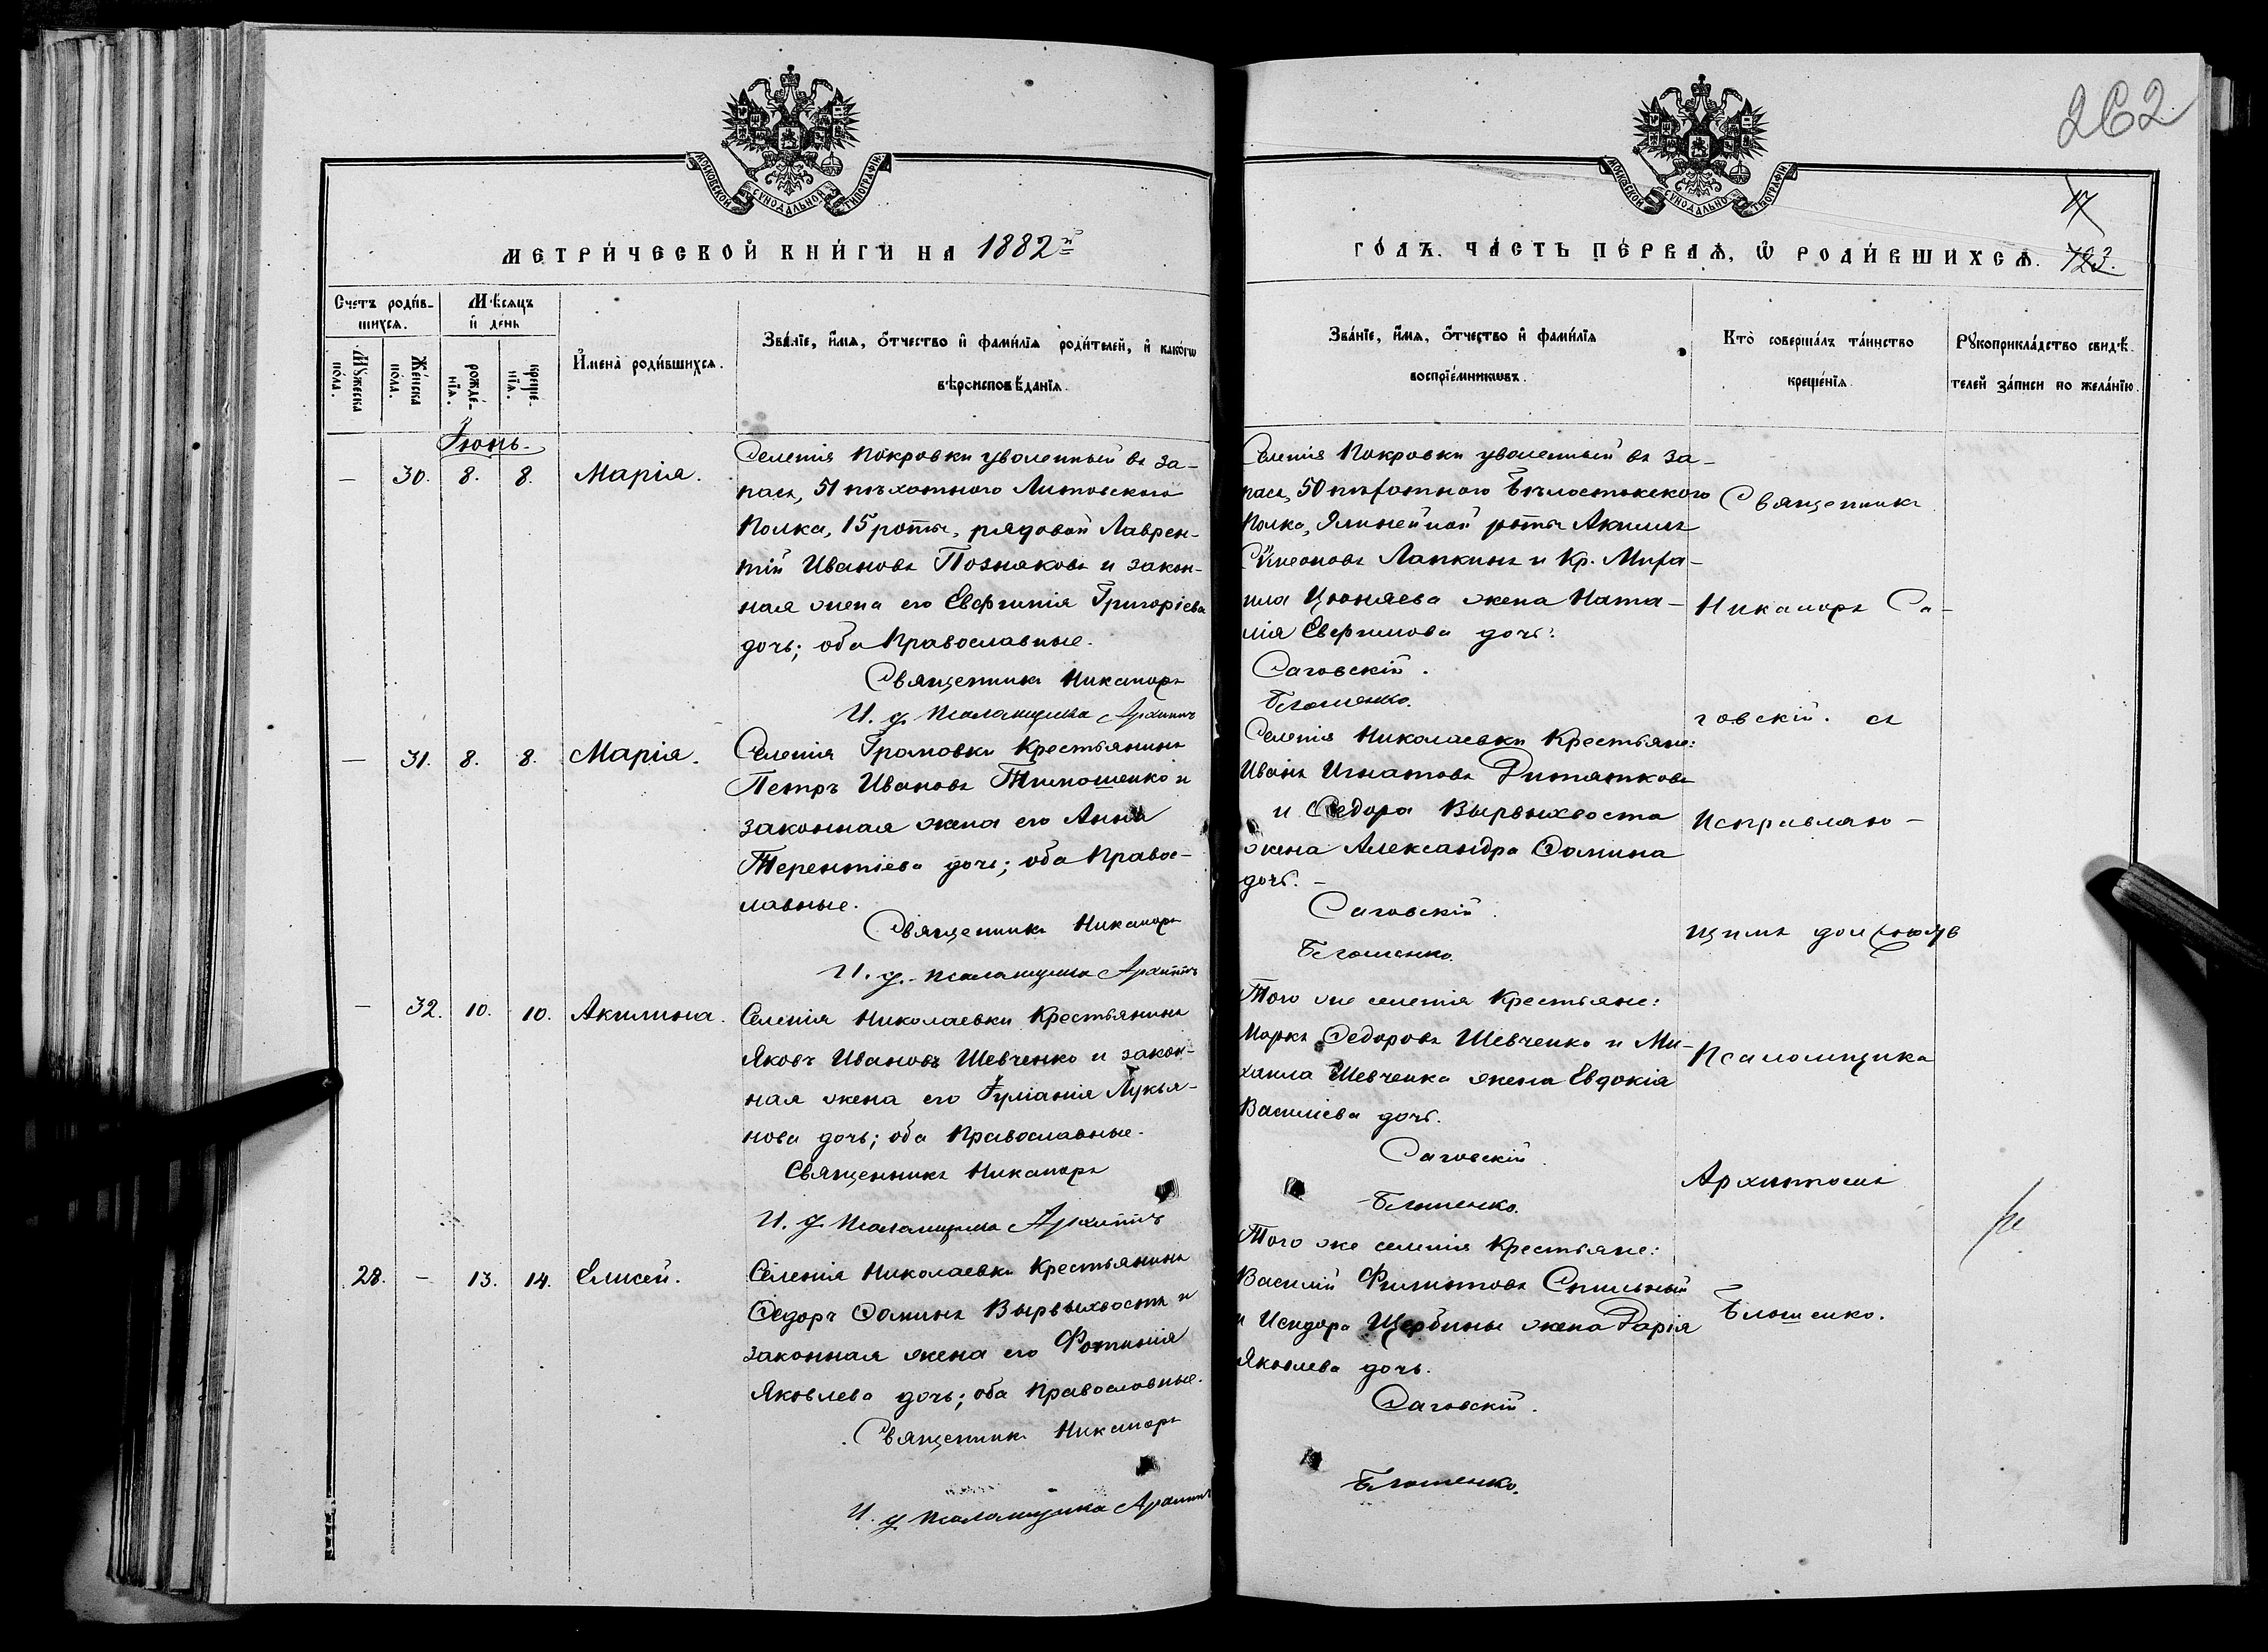 262
МОСКОВСКОЙ СѴНОДАЛЬНОЙ ТИПОГРАФІИ.
МОСКОВСКОЙ СѴНОДАЛЬНОЙ ТИПОГРАФІИ.
МЕТРИ́ЧЕСКОЙ КНИ́ГИ НА 1882й
ГО́ДЪ. ЧА́СТЬ ПЕ́РВАѦ, Ѽ РОДИ́ВШИХСѦ. 123.
Счетъ роди́в-
шихсѧ.
Мѣсяцъ
и́ де́нь
Мꙋжеска
по́ла.
Же́нска
по́ла.
рожде́-
нїѧ.
креще́-
нїѧ.
И҆мена̀ роди́вшихсѧ.
Зва́нїе, и҆́мѧ, ѻ҆́тчество и҆ фами́лїѧ роди́телей, и҆ како́гѡ
вѣроисповѣ́данїѧ.
Зва́нїе, и҆́мѧ, ѻ҆́тчество и҆ фами́лїѧ
воспрїе́мникѡвъ.
Кто̀ соверша́лъ та́инство
креще́нїѧ.
Рꙋкоприкла́дство свидѣ́-
телей за́писи по жела́нїю.
Іюнь.
— 30. 8. 8. Марія.
Селенія Покровки уволенный въ за-
пасъ, 51 пѣхотного Литовскаго
Полка, 15 роты, рядовой Лаврен-
тій Ивановъ Позняковъ и закон-
ная жена его Евфимія Григоріева
дочь; оба Православные.
Священникъ Никаноръ
И. д. псаломщика Архипъ
Селенія Покровки уволенный въ за-
пасъ, 50 пѣхотного Бѣлостокского
Полка, роты Акимъ
Симеоновъ Лапкинъ и Кр. Миха-
ила жена Ната-
лія Евфимова дочь.
Саговскій.
Блошенко.
— 31. 8. 8. Марія.
Селенія Громовки Крестьянинъ
Петръ Ивановъ Тимошенко и
законная жена его Анна
Терентіева дочь; оба Правос-
лавные.
Священникъ Никаноръ
И. д. псаломщика Архипъ
Селенія Николаевки Крестьяне:
Иванъ Игнатовъ Дитятковъ
и Ѳедора Вырвыхвоста
жена Александра Ѳомина
дочь. —
Саговскій.
Блошенко.
— 32. 10. 10. Акилина.
Селенія Николаевки Крестьянинъ
Яковъ Ивановъ Шевченко и закон-
ная жена его Іуліанія Лукья-
нова дочь; оба Православные.
Священникъ Никаноръ
И. д. псаломщика Архипъ
Того же селенія Крестьяне:
Марко Ѳедоровъ Шевченко и Ми-
хаила Шевченка жена Евдокія
Василіева дочь.
Саговскій.
Блошенко.
28. — 13. 14. Елисей.
Селенія Николаевки Крестьянинъ
Ѳедоръ Ѳоминъ Вырвыхвостъ и
законная жена его Фотинія
Яковлева дочь; оба Православные.
Священникъ Никаноръ
И. д. псаломщика Архипъ
Того же селенія Крестьяне:
Василій Филиповъ
и Исидора Щербины жена Дарія
Яковлева дочь.
Саговскій.
Блошенко.
Священникъ
Никаноръ Са-
говскій. съ
Исправляю-
щимъ должность
Псаломщика
Архипомъ
Блошенко.